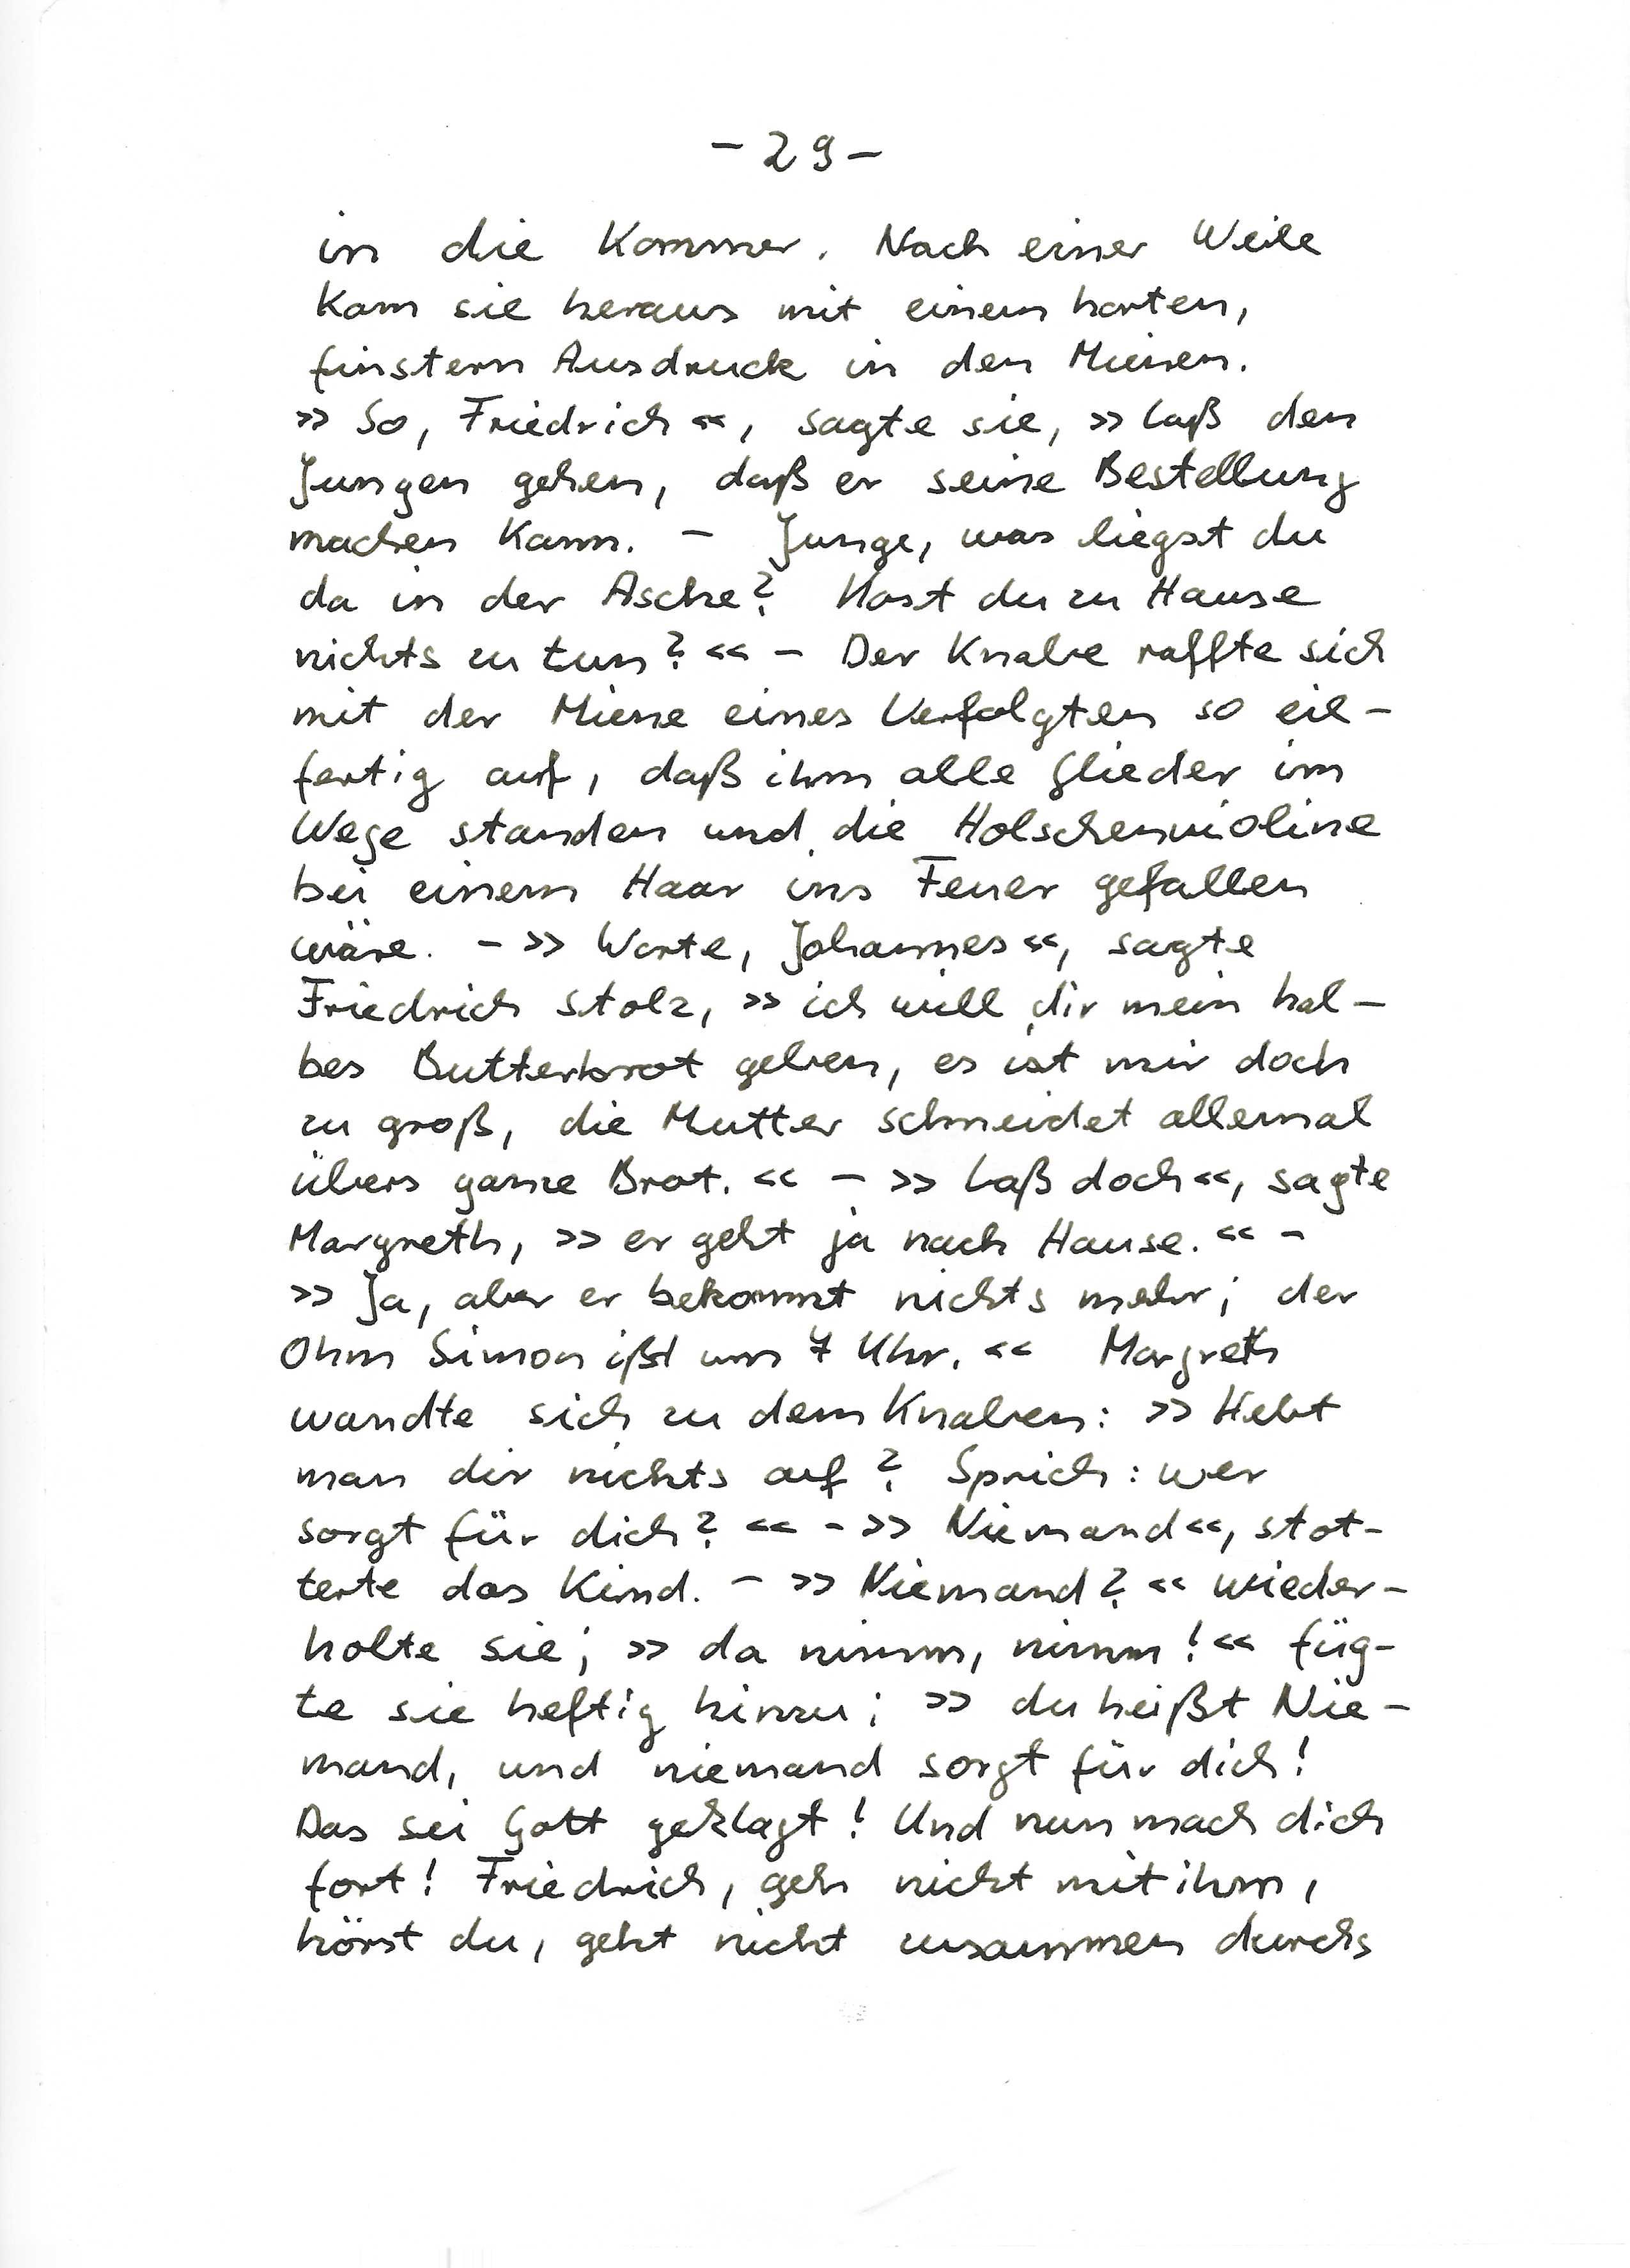 - 29 -
in die Kammer. Nach einer Weile
kam sie heraus mit einem harten,
finstern Ausdruck in den Mienen.
»So, Friedrich«, sagte sie, »laß den
Jungen gehen, daß er seine Bestellung
machen kann. - Junge, was liegst du
da in der Asche? Hast du zu Hause
nichts zu tun?« - Der Knabe raffte sich
mit der Miene eines Verfolgten so eil-
fertig auf, daß ihm alle Glieder im
Wege standen und die Holschenvioline
bei einem Haar ins Feuer gefallen
wäre. - »Warte, Johannes«, sagte
Friedrich stolz, »ich will dir mein hal-
bes Butterbrot geben, es ist mir doch
zu groß, die Mutter schneidet allemal
übers ganze Brot.« - »Laß doch«, sagte
Margreth, »er geht ja nach Hause.« -
»Ja, aber er bekommt nichts mehr; der
Ohm Simon ißt um 7 Uhr.« Margreth
wandte sich zu dem Knaben: »Hebt
man dir nichts auf? Sprich: wer
sorgt für dich?« - »Niemand«, stot-
terte das Kind. - »Niemand?« wieder-
holte sie; »da nimm, nimm!« füg-
te sie heftig hinzu; »du heißt Nie-
mand, und niemand sorgt für dich!
Das sei Gott geklagt! Und nun mach dich
fort! Friedrich, geh nicht mit ihm,
hörst du, geht nicht zusammen durchs